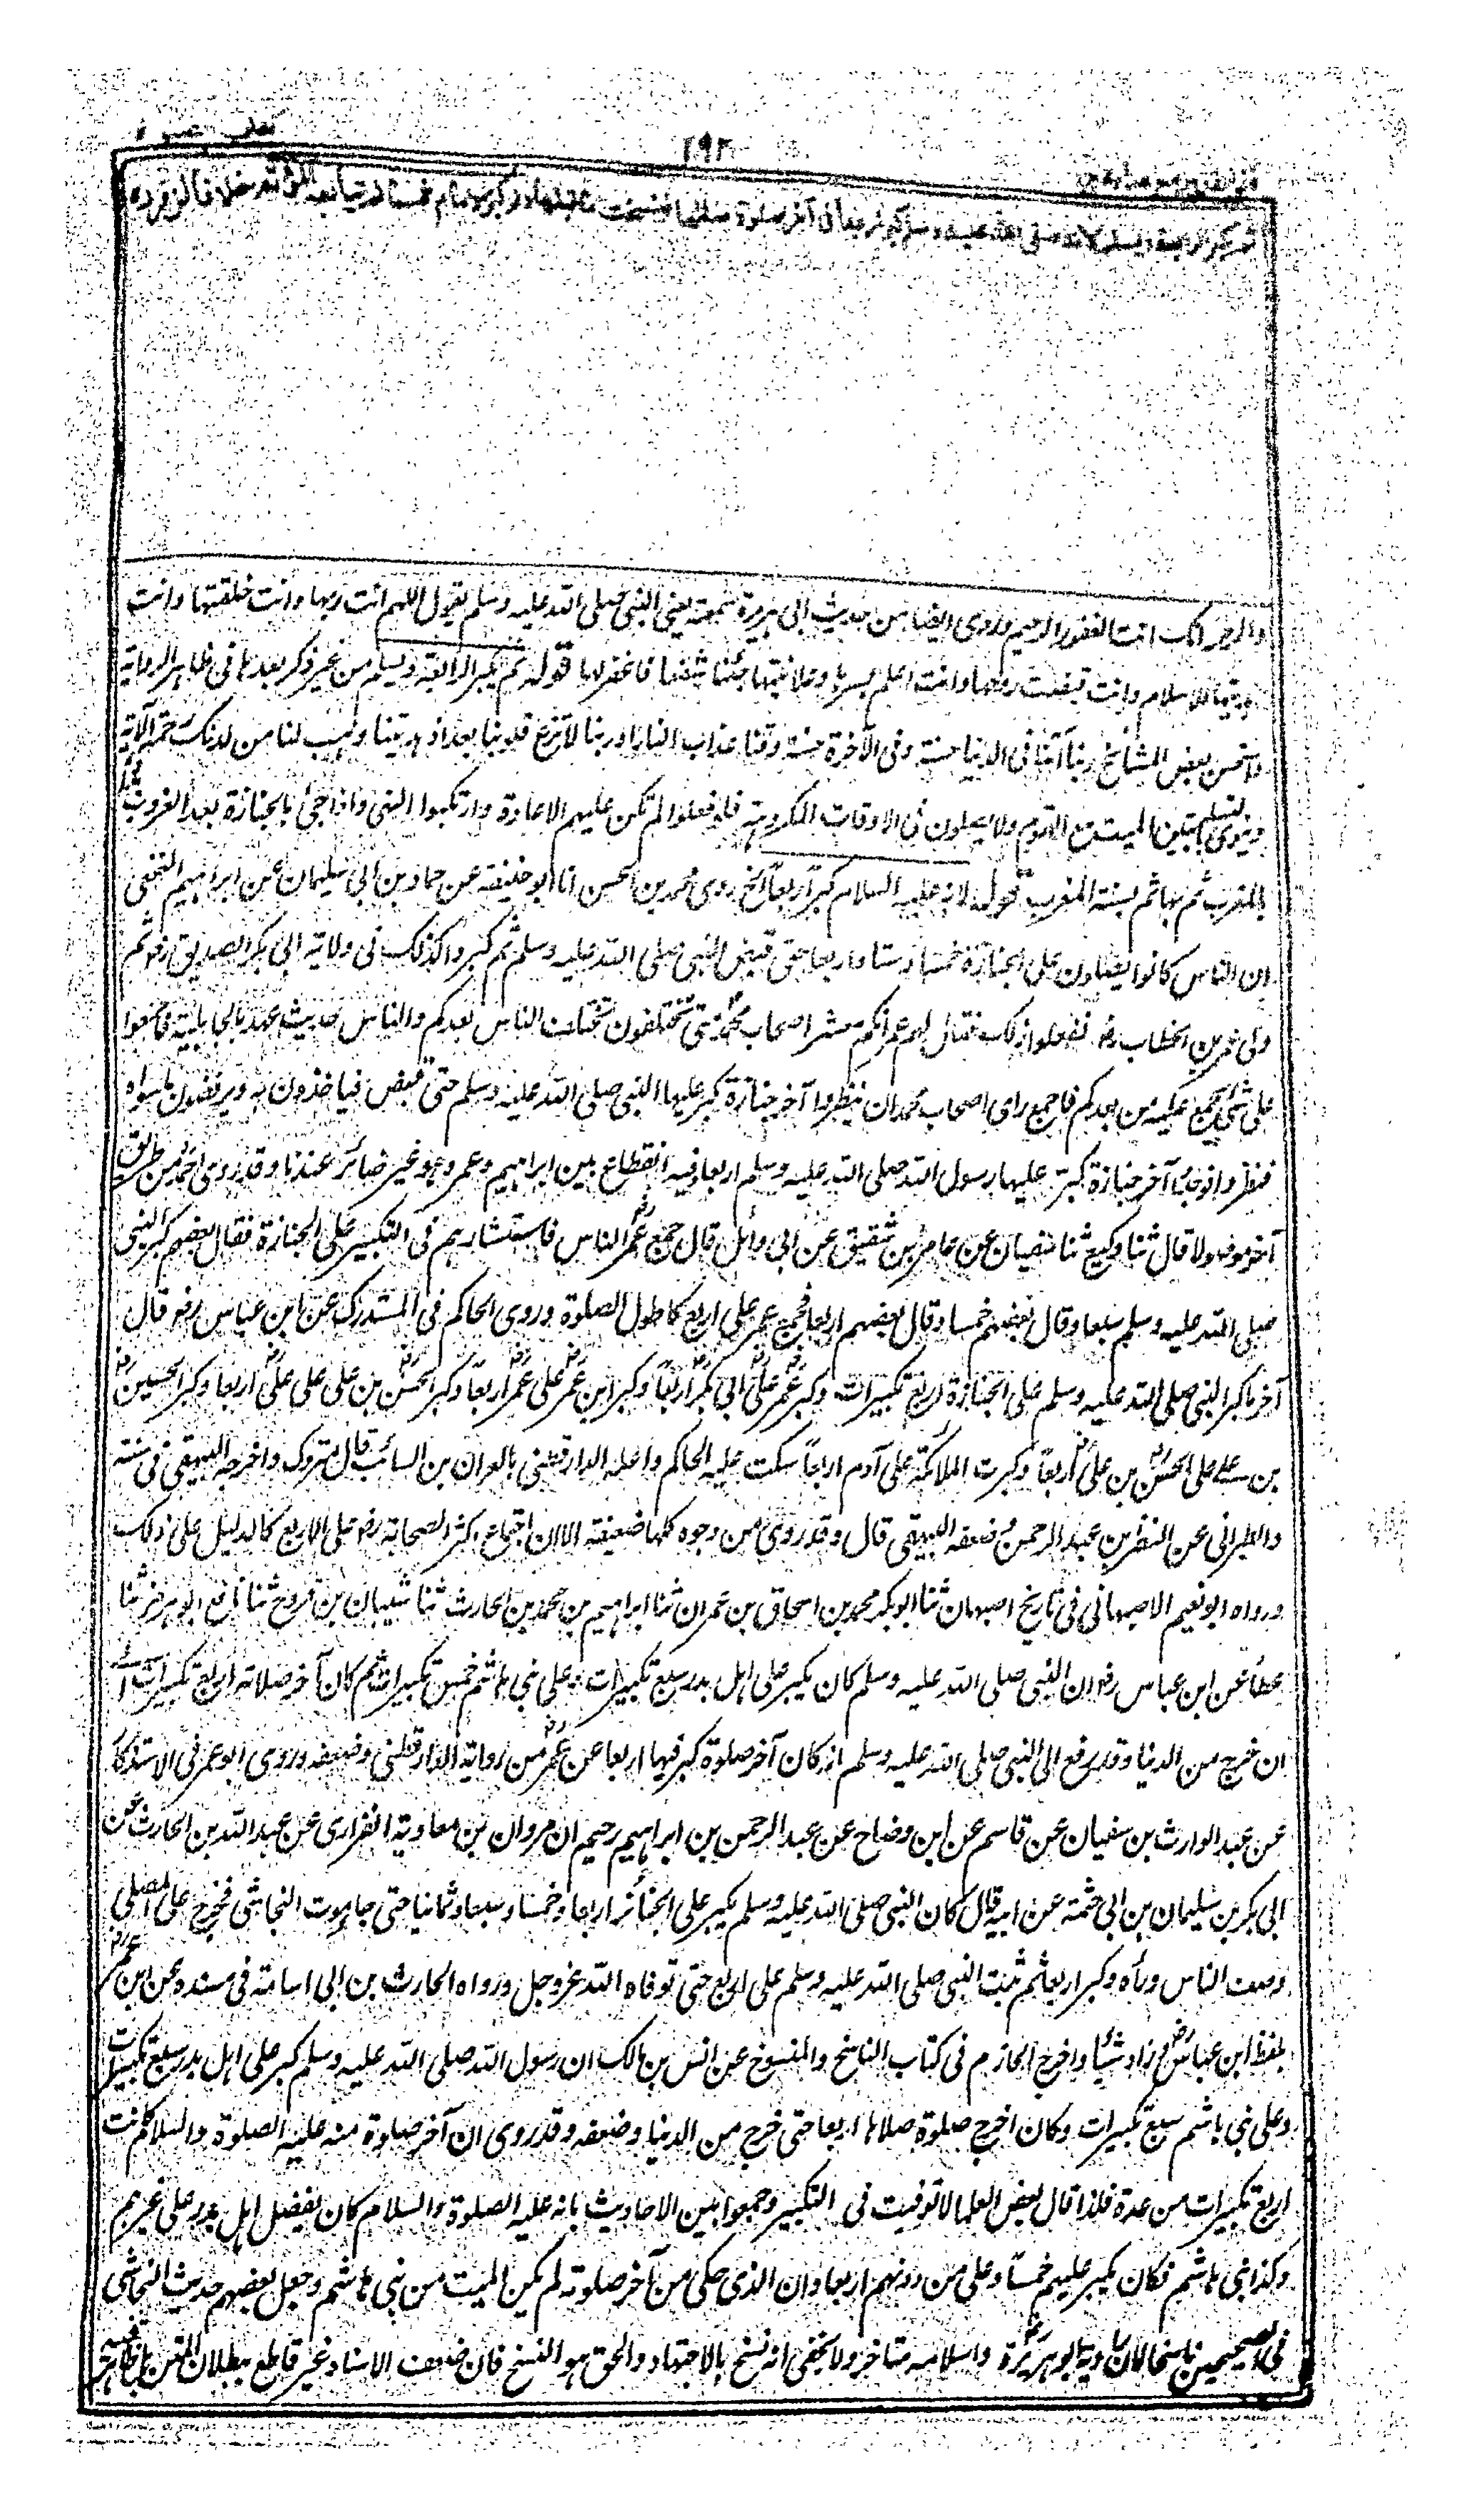 ٢٩٢
ثم يكبر الرابعة ويسلم لانه صلى الله عليه وسلم كبر اربعا فى آخر صلوة صلاها فنسخت ما قبلها ولو كبر الامام خمسا لم يتابعه المؤتم خلافا لزفر
والرحم انك انت الغفور الرحيم وروى ايضا من حديث ابى هريرة سمعته يعنى النبى صلى الله عليه وسلم يقول اللهم انت ربها وانت خلقتها وانت
هديتها للاسلام وانت قبضت روحها وانت اعلم بسرها وعلانيتها جئنا شفعا فاغفر لها قوله ثم يكبر الرابعة ويسلم من غير ذكر بعدها فى ظاهر الرواية
واستحسن بعض المشائخ ربنا آتنا فى الدنيا حسنة وفى الآخرة حسنة وقنا عذاب النار او ربنا لا تزغ قلوبنا بعد اذ هديتنا وهب لنا من لدنك رحمة الآية
وينوى بالتسليمتين الميت مع القوم ولا يصلون فى الاوقات المكروهة فلو فعلوا لم تكن عليهم الاعادة وارتكبوا النهى واذا جئ بالجنازة بعد الغروب
بالمغرب ثم بها ثم بسنة المغرب قوله لانه عليه السلام كبر اربعا الخ روى محمد بن الحسن انا ابو حنيفة عن حماد بن ابى سليمان عن ابراهيم النخعى
ان الناس كانوا يصلون على الجنازة خمسا وستا واربعا حتى قبض النبى صلى الله عليه وسلم ثم كبروا كذلك فى ولاية ابى بكر الصديق رضـ ثم
ولى عمر بن الخطاب رضـ ففعلوا ذلك فقال لهم عمر انكم معشر اصحاب محمد متى تختلفون تختلف الناس بعدكم والناس حديث عهد بالجاهلية فاجمعوا
على شئ يجمع عليه من بعدكم فاجمع راى اصحاب محمد ان ينظروا آخر جنازة كبر عليها النبى صلى الله عليه وسلم حتى قبض فياخذون به ويرفضون ما سواه
فنظروا فوجدوا آخر جنازة كبر عليها رسول الله صلى الله عليه وسلم اربعا وفيه انقطاع بين ابراهيم وعمر وهو غير ضائر عندنا وقد روى احمد من طريق
آخر موصولا قال ثنا وكيع ثنا سفيان عن عامر بن شقيق عن ابى وائل قال جمع عمر الناس فاستشارهم فى التكبير على الجنازة فقال بعضهم كبر النبى
صلى الله عليه وسلم سبعا وقال بعضهم خمسا وقال بعضهم اربعا فجمع عمر على اربع كاطول الصلوة وروى الحاكم فى المستدرك عن ابن عباس رضـ قال
آخر ما كبر النبى صلى الله عليه وسلم على الجنازة اربع تكبيرات وكبر عمر على ابى بكر اربعا وكبر ابن عمر على عمر اربعا وكبر الحسن بن على على على اربعا وكبر الحسين
بن على على الحسن بن على اربعا وكبرت الملائكة على آدم اربعا سكت عليه الحاكم واعله الدارقطنى بالفرات بن السائب قال متروك واخرجه البيهقى فى سننه
والطبرانى عن النضر بن عبد الرحمن وضعفه البيهقى قال وقد روى من وجوه كلها ضعيفة الا ان اجتماع اكثر الصحابة رضـ على الاربع كالدليل على ذلك
ورواه ابو نعيم الاصبهانى فى تاريخ اصبهان ثنا ابو بكر محمد بن اسحاق بن عمران ثنا ابراهيم بن محمد بن الحارث ثنا شيبان بن فروخ ثنا نافع ابو هرمز ثنا
عطاء عن ابن عباس رضـ ان النبى صلى الله عليه وسلم كان يكبر على اهل بدر سبع تكبيرات وعلى بنى هاشم خمس تكبيرات ثم كان آخر صلاته اربع تكبيرات الى
ان خرج من الدنيا وقد رفع الى النبى صلى الله عليه وسلم انه كان آخر صلوة كبر فيها اربعا عن عمر من رواية الدارقطنى وضعفه وروى ابو عمر فى الاستذكار
عن عبد الوارث بن سفيان عن قاسم عن ابن وضاح عن عبد الرحمن بن ابراهيم رحيم ان مروان بن معاوية الفزارى عن عبد الله بن الحارث عن
ابى بكر بن سليمان بن ابى حثمة عن ابيه قال كان النبى صلى الله عليه وسلم يكبر على الجنائز اربعا وخمسا وسبعا وثمانيا حتى جاء موت النجاشى فخرج على المصلى
وصف الناس وراءه وكبر اربعا ثم ثبت النبى صلى الله عليه وسلم على اربع حتى توفاه الله عز وجل ورواه الحارث بن ابى اسامة فى مسنده عن ابن عمر
بلفظ ابن عباس وزاد شيئا واخرج الحازم فى كتاب الناسخ والمنسوخ عن انس بن مالك ان رسول الله صلى الله عليه وسلم كبر على اهل بدر سبع تكبيرات
وعلى بنى هاشم سبع تكبيرات وكان اخرج صلوة صلاها اربعا حتى خرج من الدنيا وضعفه وقد روى ان آخر صلوة منه عليه الصلوة والسلام كانت
اربع تكبيرات من عدة فلذا قال بعض العلما لا توقيت فى التكبير وجمعوا بين الاحاديث بانه عليه الصلوة والسلام كان يفضل اهل بدر على غيرهم
وكذا بنى هاشم فكان يكبر عليهم خمسا وعلى من دونهم اربعا وان الذى حكى من آخر صلوته لم يكن الميت من بنى هاشم وجعل بعضهم حديث النجاشى
فى الصحيحين ناسخا لان راويه ابو هريرة واسلامه متاخر ولا يخفى انه نسخ بالاجتهاد والحق هو النسخ فان ضعف الاسناد غير قاطع ببطلان المتن بل ظاهر فيه